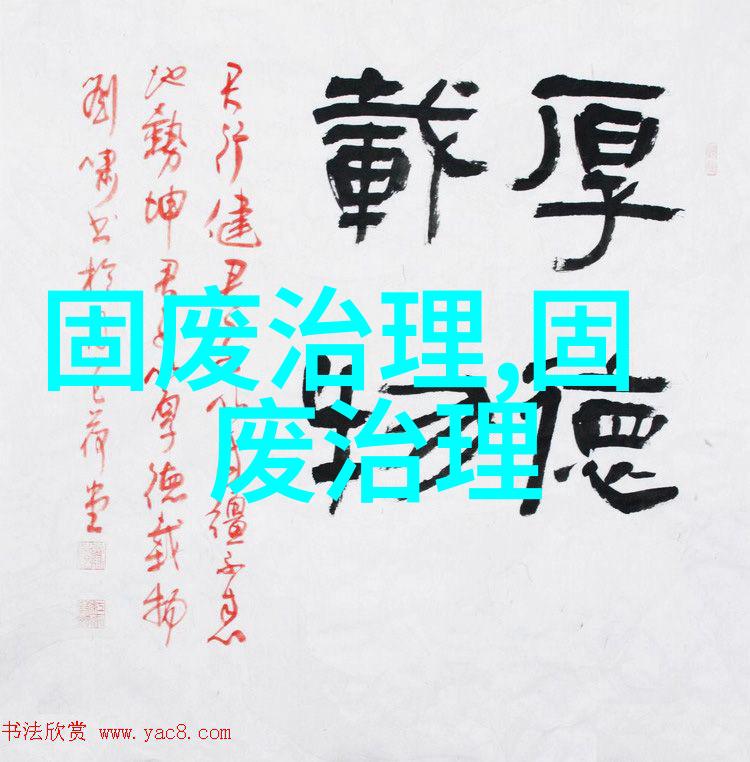 厚德
載物
天行健君子以自彊不息
地勢坤君子以厚德載物
劉嘯書於
荷堂
固废治理,固
废治理
书法欣赏 www.yac8.com